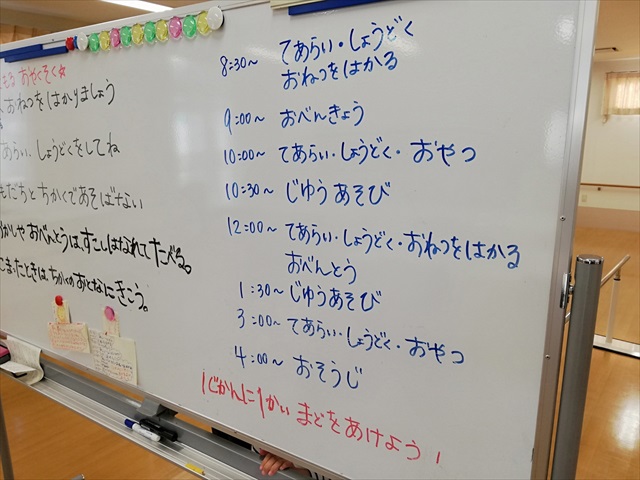 おやくそく☆
おねつをはかりましょう
あらい・しょうどくをしてね
もだちとちかくであそばない
おべんとうは、すこしはなれてたべる。
こまったときは、ちかくのおとなにきこう。
8:30～ てあらい・しょうどく
おねつをはかる
9:00～ おべんきょう
10:00～ てあらい・しょうどく・おやつ
10:30～ じゆうあそび
12:00～ てあらい・しょうどく・おねつをはかる
おべんとう
1:30～じゆうあそび
3:00～てあらい・しょうどく・おやつ
4:00～ おそうじ
1じかんに1かい まどをあけよう!